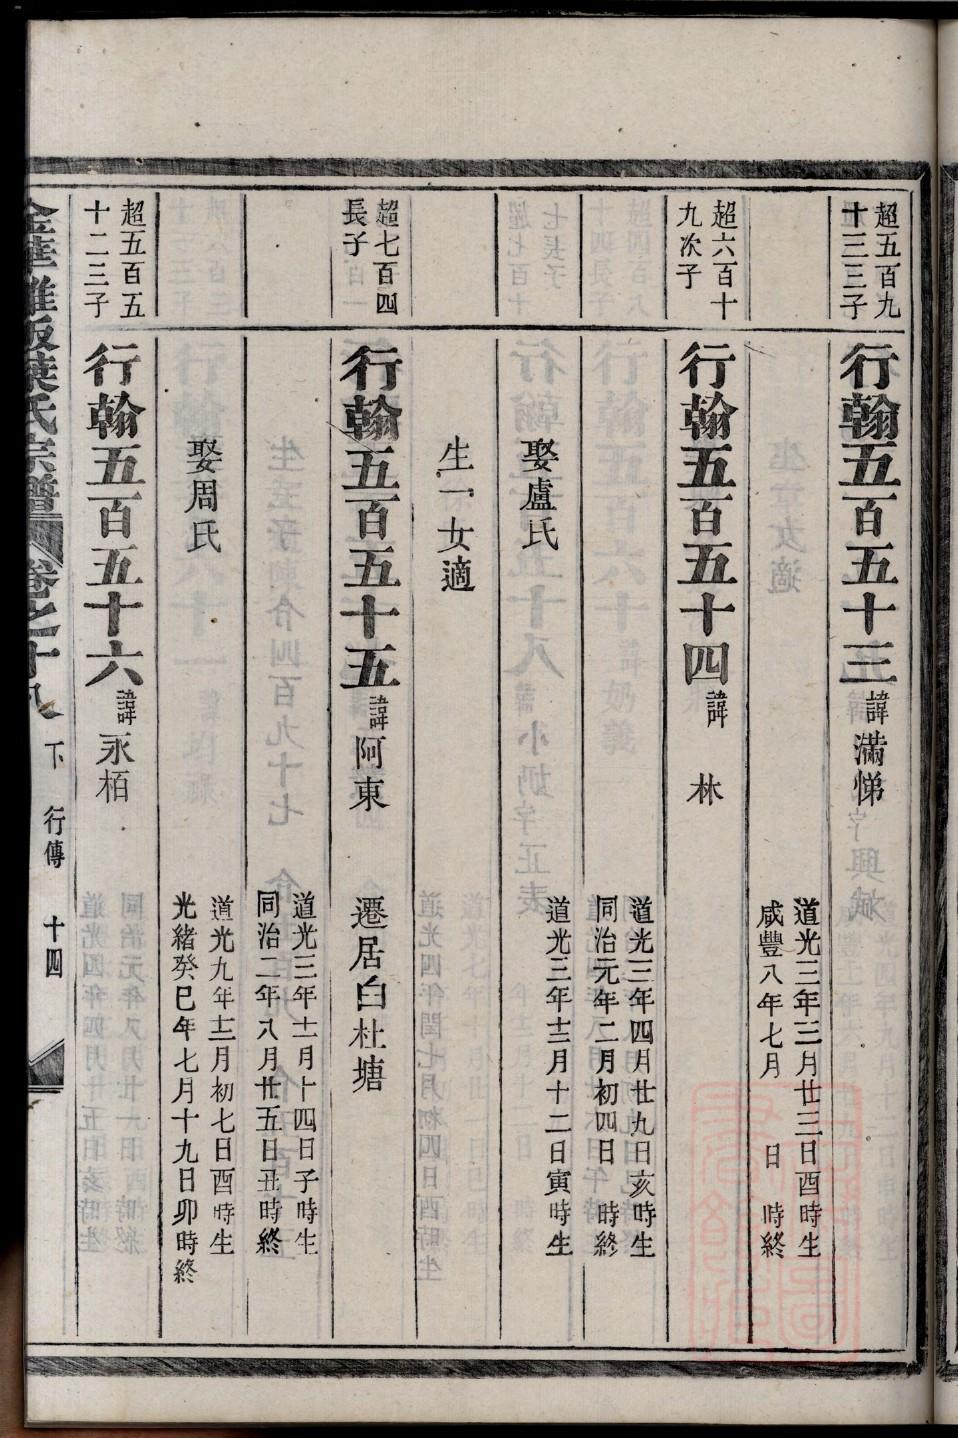 超五百九
十三三子
行翰五百五十三 諱滿悌
道光三年三月廿三日酉時生
咸豐八年七月 日 時終
超六百十
九次子
行翰五百五十四 諱 林
道光三年四月廿九日亥時生
同治元年二月初四日 時終
娶盧氏
道光三年十二月十二日寅時生
生一女適
超七百四
長子
行翰五百五十五 諱阿東 遷居白杜塘
道光三年十一月十四日子時生
同治二年八月廿五日丑時終
娶周氏
道光九年十二月初七日酉時生
光緒癸巳年七月十九日卯時終
超五百五
十二三子
行翰五百五十六 諱永栢
氏宗譜 卷之十八 下 行傳 十四